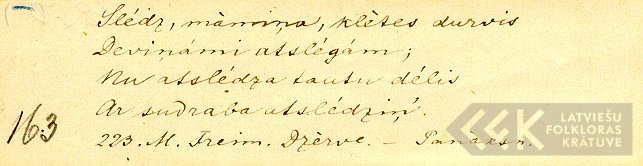 Slēdz, māmiņa, klētes durvis
Deviņâmi atslēgâm;
Nu atslēdza tautu dēlis
Ar sudraba atslēdziņ'.
163
223. M. Freim. Dzērve. –
LATVIEŠU
FOLKLORAS
KRĀTUVE